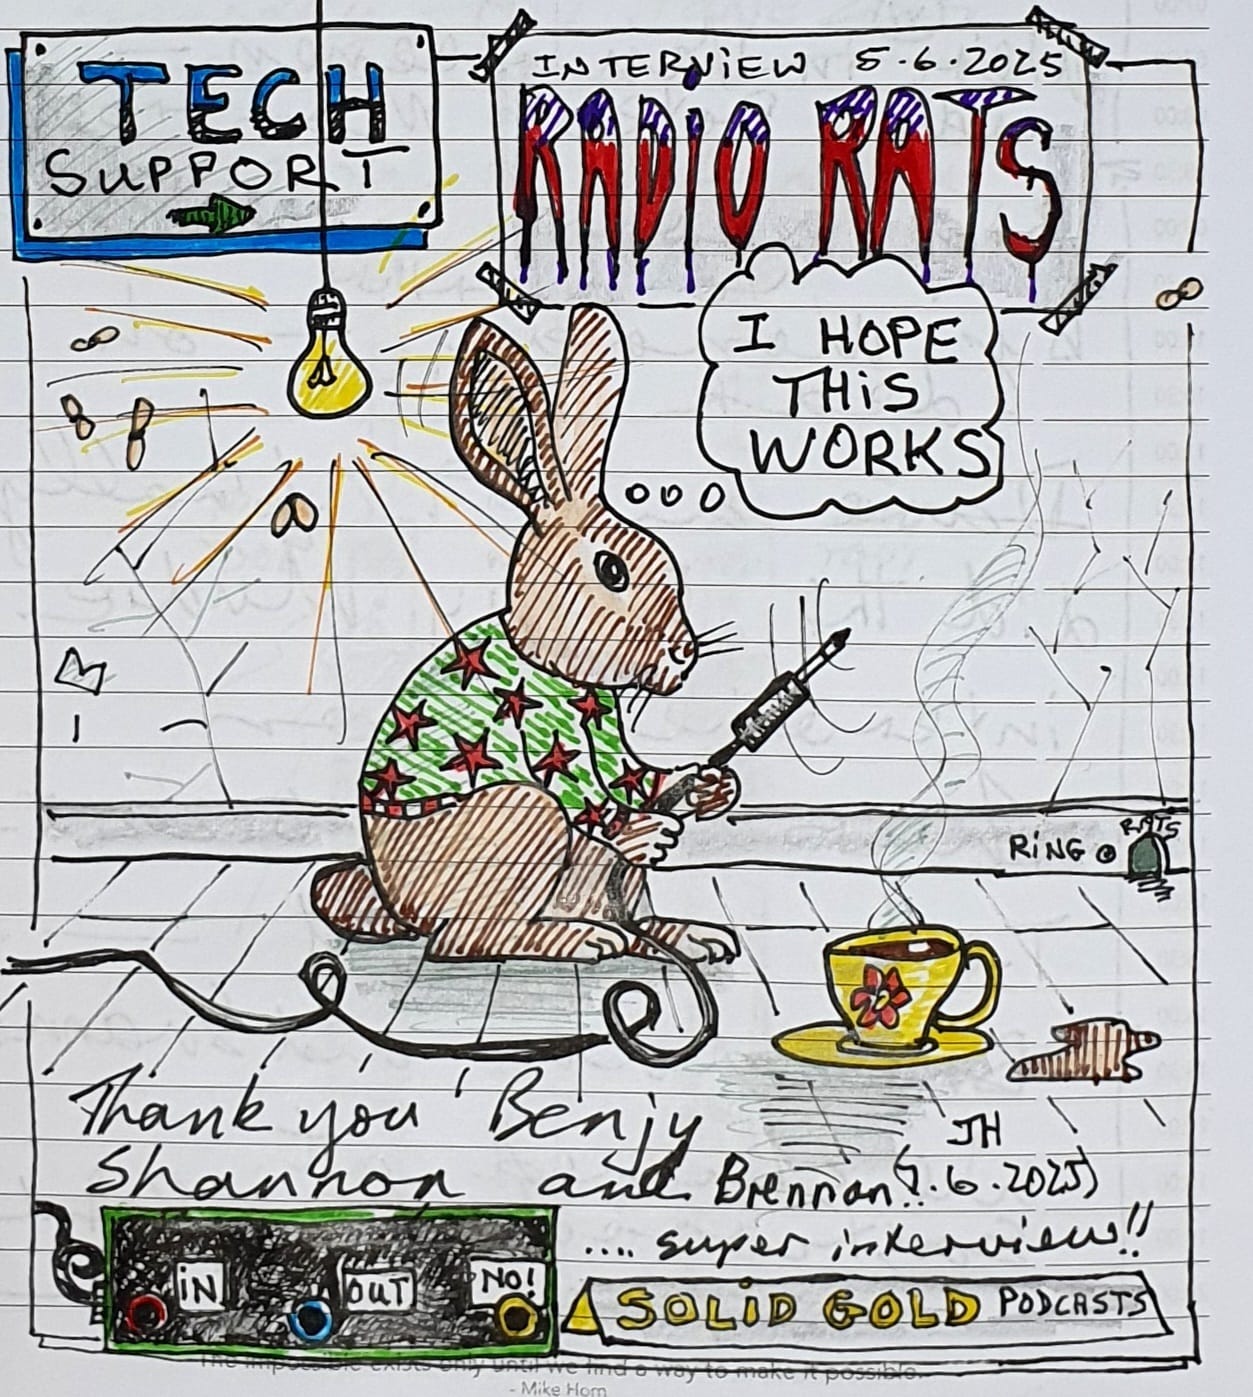 TECH
SUPPORT
INTERViEW 5.6.2025
RADiO RATS
I HOPE
THiS
WORKS
RATS
RiNG
Thank you Benjy
Shannon and Brennan!!
JH
.6.2025)
.... super interview!!
iN
OUT
NO!
SOLiD GOLD PODCASTS
The impossible exists only until we find a way to make it possible.
- Mike Horn